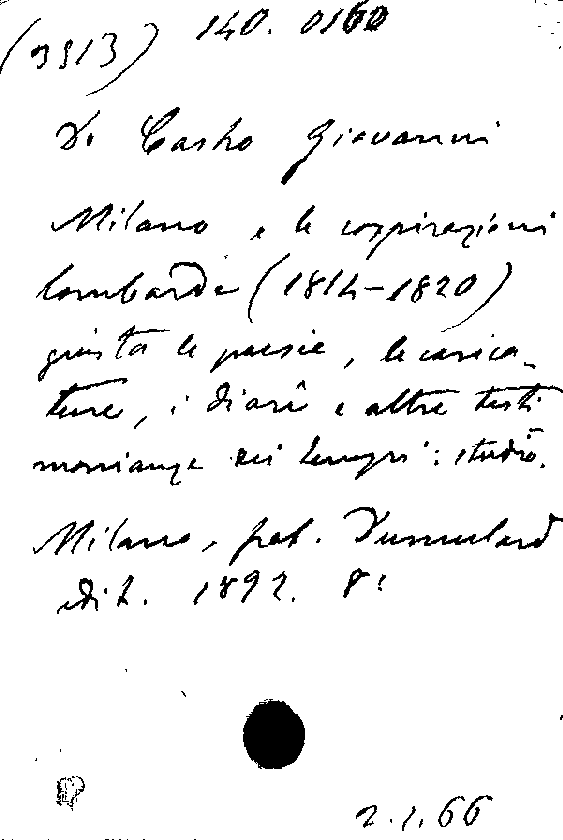 (3313) 140. 0160
De Castro Giovanni
Milano e le cospirazioni
lombarde (1814-1820)
giusta le poesie, le carica-
ture, i diarî e altre testi
monianze dei tempi: studio.
Milano, frat. Dumolard
edit. 1892. 8°
2.1.66